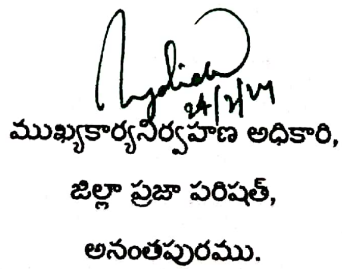 24/2/24
ముఖ్యకార్యనిర్వహణ అధికారి,
జిల్లా ప్రజా పరిషత్,
అనంతపురము.